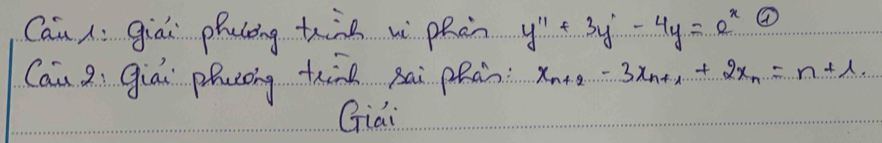 Câu 1: giải phương trình vi phân y'' + 3y' - 4y = e^x ①
Câu 2: giải phương trình sai phân: x_{n+2} - 3x_{n+1} + 2x_n = n + 1.
Giải